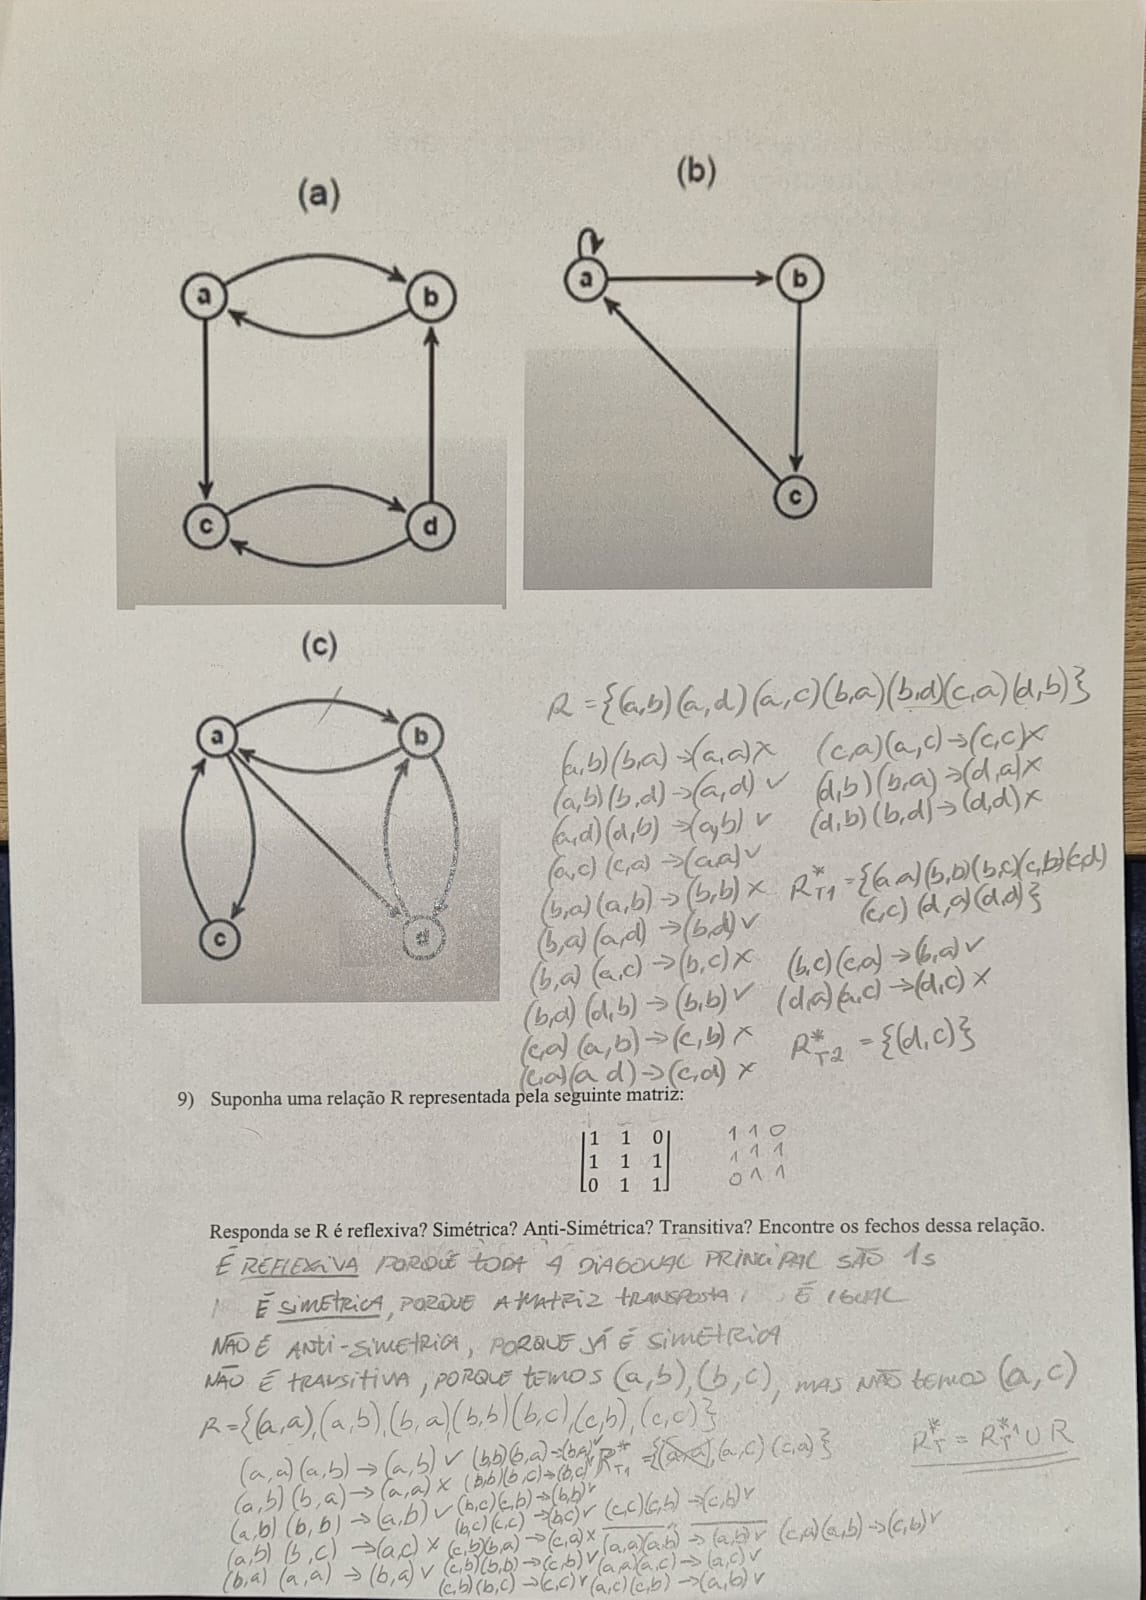 (a)
(b)
a
b
c
d
a
b
c
(c)
a
b
c
d
R = {(a,b)(a,d)(a,c)(b,a)(b,d)(c,a)(d,b)}
(a,b)(b,a)→(a,a)×
(a,b)(b,d)→(a,d) ✓
(a,d)(d,b)→(a,b) ✓
(a,c)(c,a)→(a,a)✓
(b,a)(a,b)→(b,b) ×
(b,a)(a,d)→(b,d)✓
(b,a)(a,c)→(b,c)×
(b,d)(d,b)→(b,b)✓
(c,a)(a,b)→(c,b)×
(c,a)(a,d)→(c,d) ×
(c,a)(a,c)→(c,c)×
(d,b)(b,a)→(d,a)×
(d,b)(b,d)→(d,d)×
R*T1 = {(a,a)(b,b)(b,c)(c,b)(c,d)
(c,c)(d,a)(d,d)}
(b,c)(c,a)→(b,a)✓
(d,a)(a,c)→(d,c) ×
R*T2 = {(d,c)}
9) Suponha uma relação R representada pela seguinte matriz:
1 1 0 1 1 0
1 1 1 1 1 1
0 1 1 0 1 1
Responda se R é reflexiva? Simétrica? Anti-Simétrica? Transitiva? Encontre os fechos dessa relação.
É REFLEXIVA PORQUE TODA A DIAGONAL PRINCIPAL SÃO 1s
É SIMETRICA, PORQUE A MATRIZ TRANSPOSTA É IGUAL
NÃO É ANTI-SIMETRICA, PORQUE JÁ É SIMETRICA
NÃO É TRANSITIVA, PORQUE TEMOS (a,b),(b,c), MAS NÃO TEMOS (a,c)
R={(a,a),(a,b),(b,a)(b,b)(b,c),(c,b),(c,c)}
(a,a)(a,b)→(a,b) ✓ (b,b)(b,a)→(b,a)✓ R*T1 = {(a,a),(a,c)(c,a)} R*T = R*T1 ∪ R
(a,b)(b,a)→(a,a) × (b,b)(b,c)→(b,c)✓
(a,b)(b,b)→(a,b) ✓ (b,c)(c,b)→(b,b)✓
(b,c)(c,c)→(b,c)✓ (c,c)(c,b)→(c,b)✓
(a,b)(b,c)→(a,c) × (c,b)(b,a)→(c,a)× (a,a)(a,b)→(a,b)✓ (c,a)(a,b)→(c,b)✓
(b,a)(a,a)→(b,a)✓ (c,b)(b,b)→(c,b)✓ (a,a)(a,c)→(a,c)✓
(c,b)(b,c)→(c,c)✓ (a,c)(c,b)→(a,b)✓